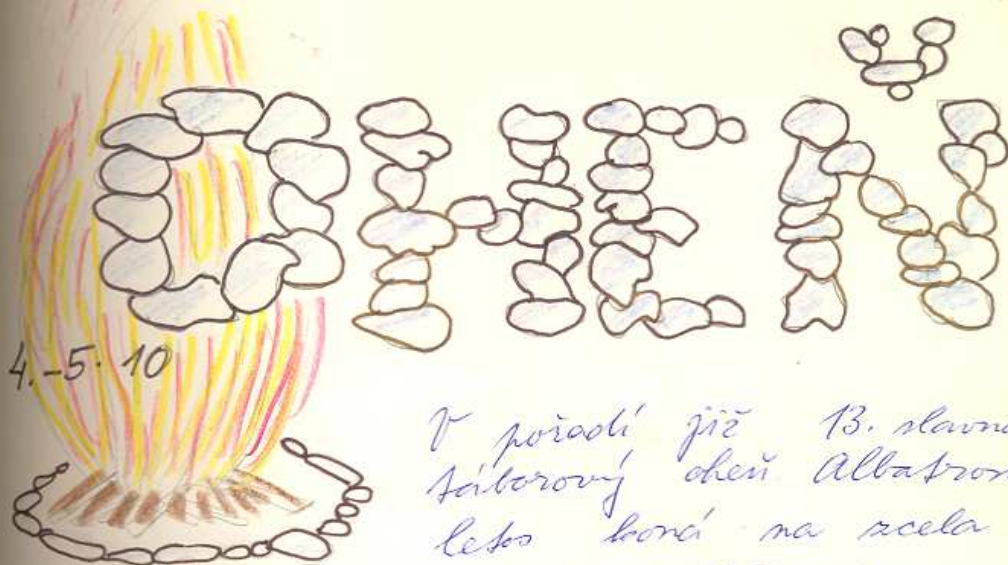 OHEŇ
4.-5. 10
V pořadí již 13. slavno
táborový oheň Albatros
letos koná na zcela